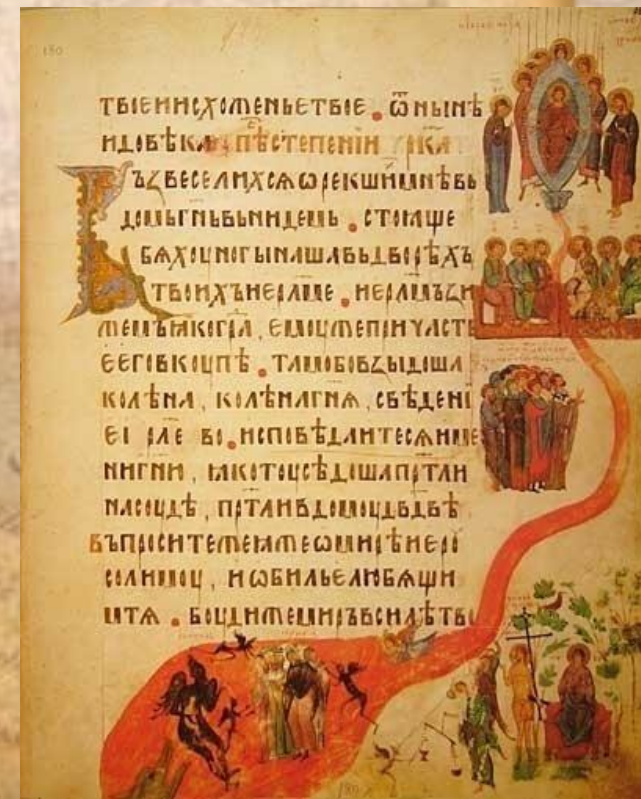 180
твоеиисхоженьетвое. ѿнынѣ
идовѣка. пѣ степении рка
Възвеселихсѧѡрекшиимнѣвь
домъгньвьнидемь. стоꙗще
бѧхоуногынашавьдворѣхъ
твоихъиерлме. иерлмъзи
жемъꙗкогра, емоужепричѧсть
еегововкоупѣ. тамобовзыдоша
колѣна, колѣнагнѧ, свѣдени
еі рле во. исповѣдатисѧиме
нигни, ꙗкотоусѣдошапртли
насоудѣ, пртливдомоудвдвѣ
въпроситежеꙗжеѡмирѣиеро
солимоу, иѡбильелюбѧщи
мтѧ. боудижемиръвсилѣтво